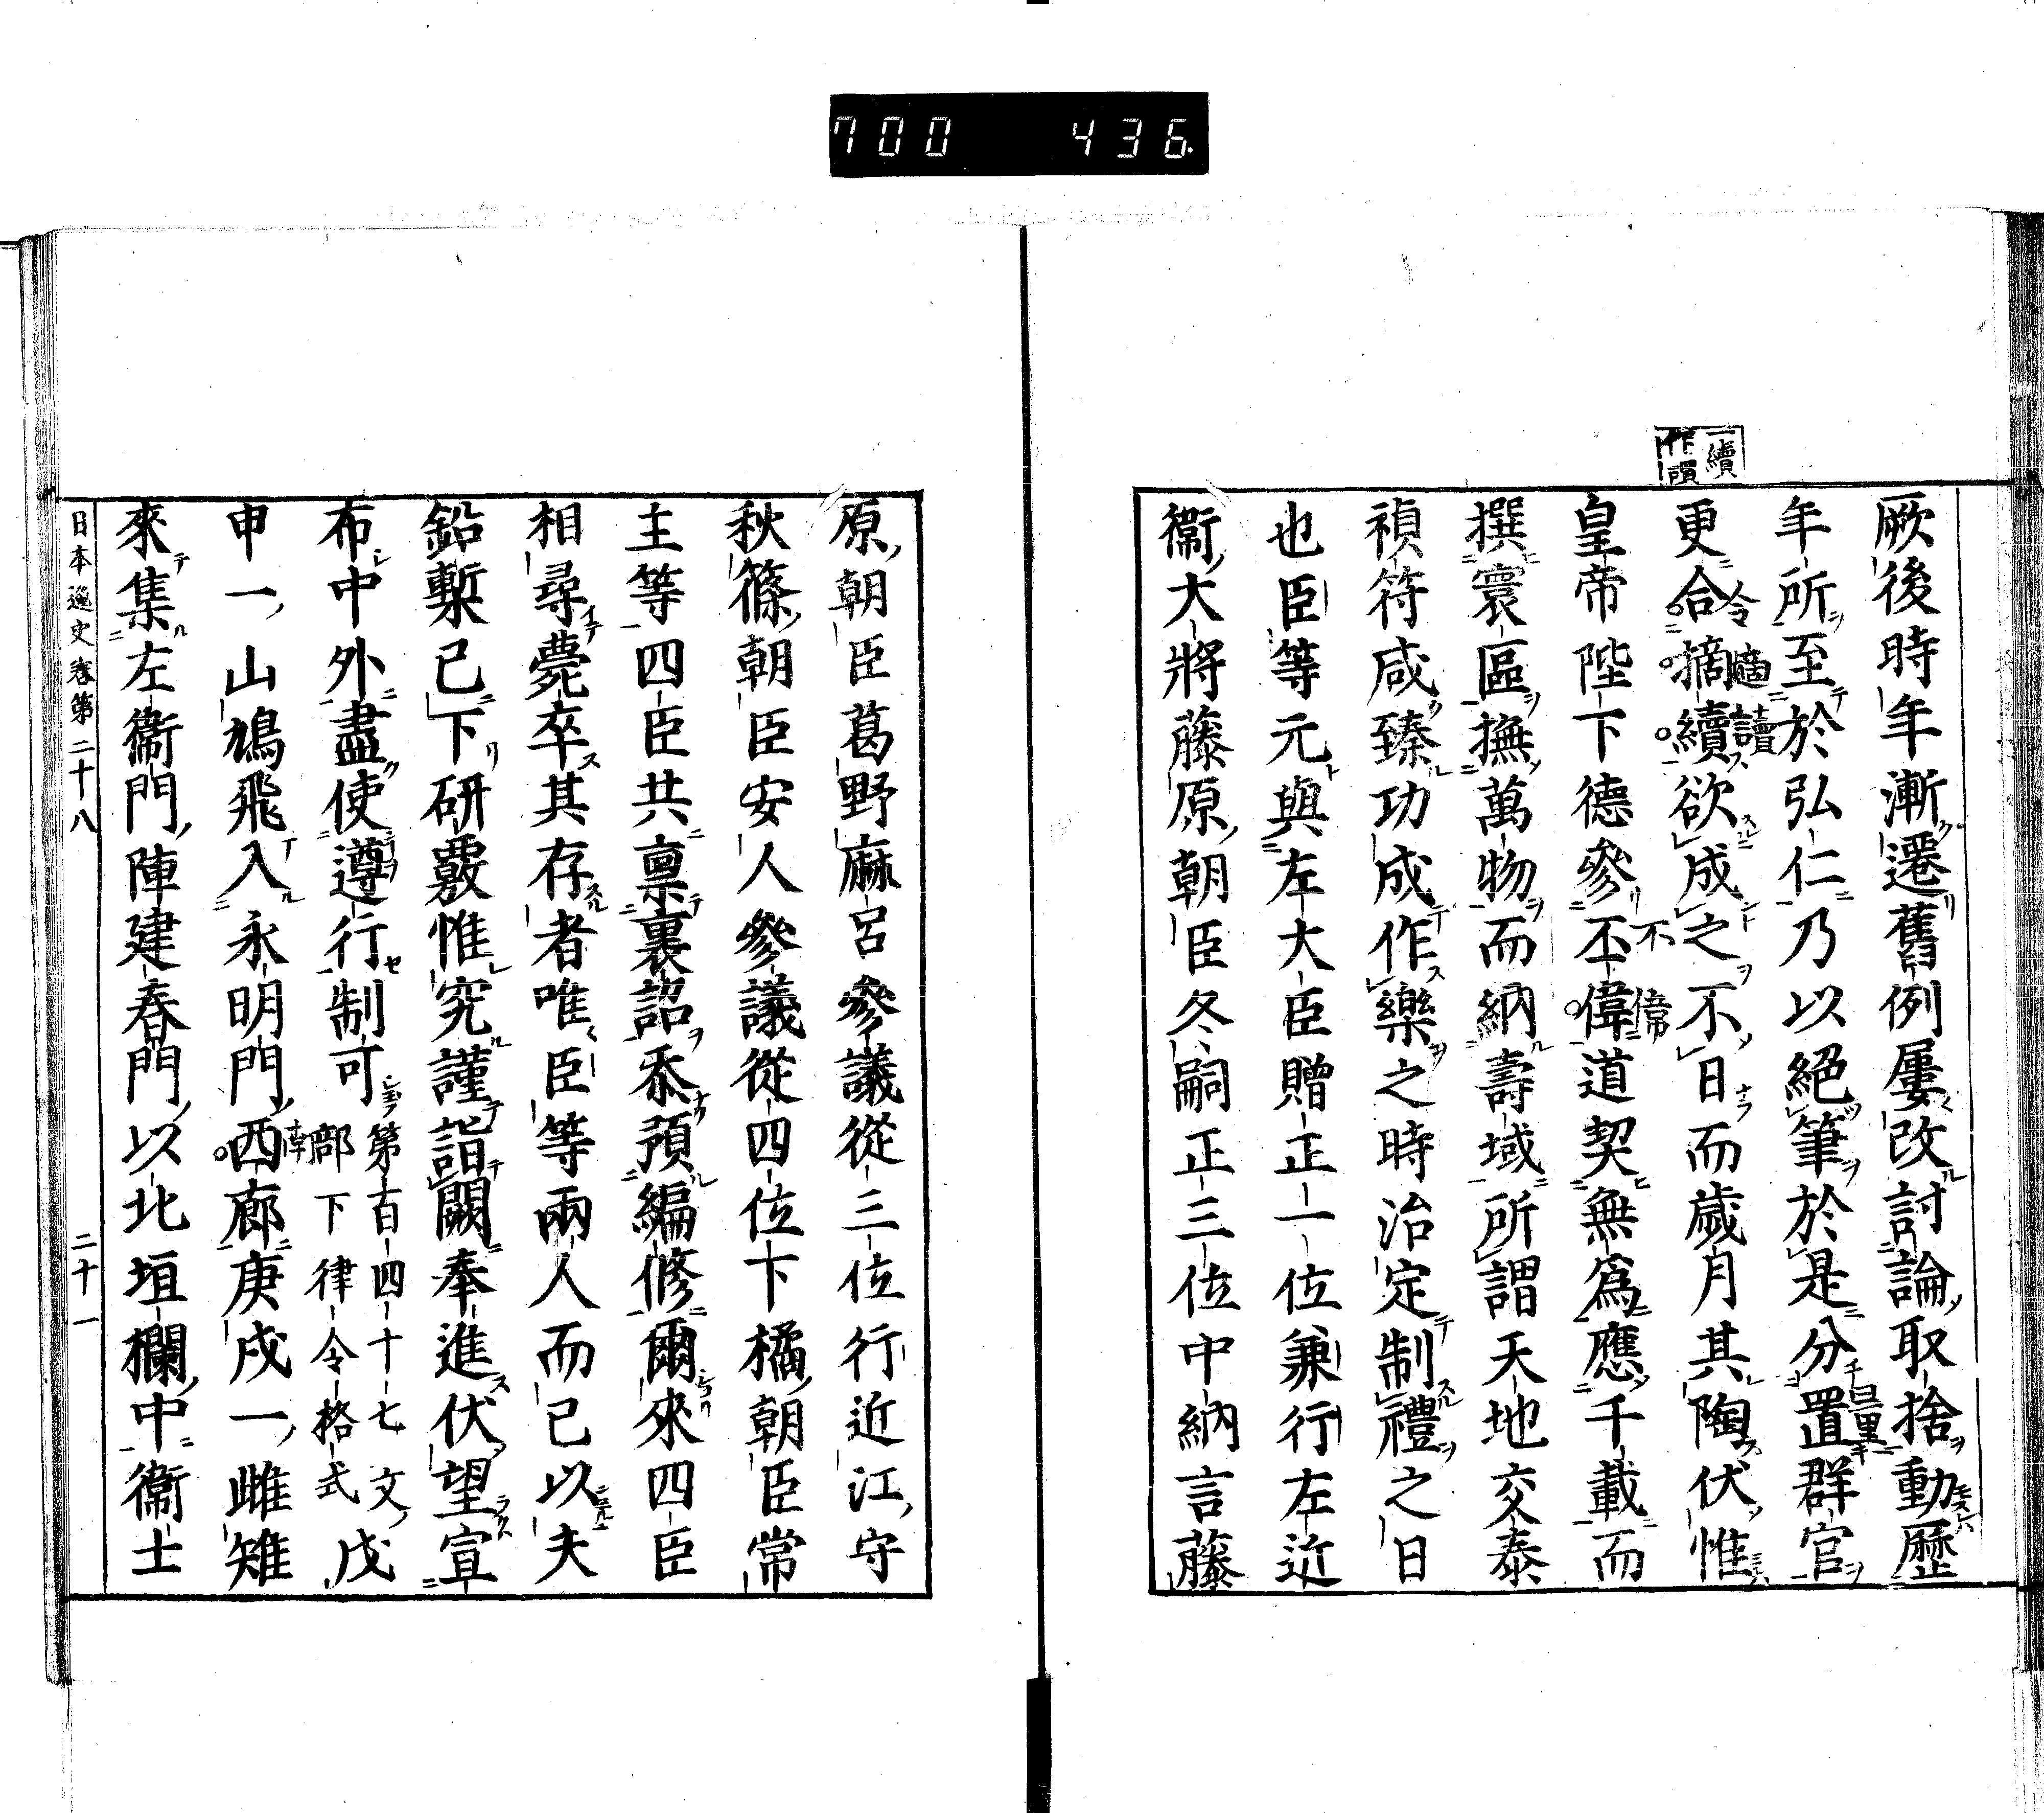 700 436
一續
作讀
厥後時年漸遷舊例屢改討論取捨動歷
年所至於弘仁乃以絕筆於是分置群官
更合摘續欲成之不日而歲月其陶伏惟
皇帝陛下德參丕偉道契無爲應千載而
撰寰區撫萬物而納壽域所謂天地交泰
禎符咸臻功成作樂之時治定制禮之日
也臣等元與左大臣贈正一位兼行左近
衞大將藤原朝臣冬嗣正三位中納言藤
原朝臣葛野麻呂參議從三位行近江守
秋篠朝臣安人參議從四位下橘朝臣常
主等四臣共禀裏詔忝預編修爾來四臣
相尋薨卒其存者唯臣等兩人而已以夫
鉛槧已下研覈惟究謹詣闕奉進伏望宣
布中外盡使遵行制可第百四十七文部下律令格式戊
申一山鳩飛入永明門西廊庚戌一雌雉
來集左衞門陣建春門以北垣欄中衞士
日本逸史卷第二十八 二十一